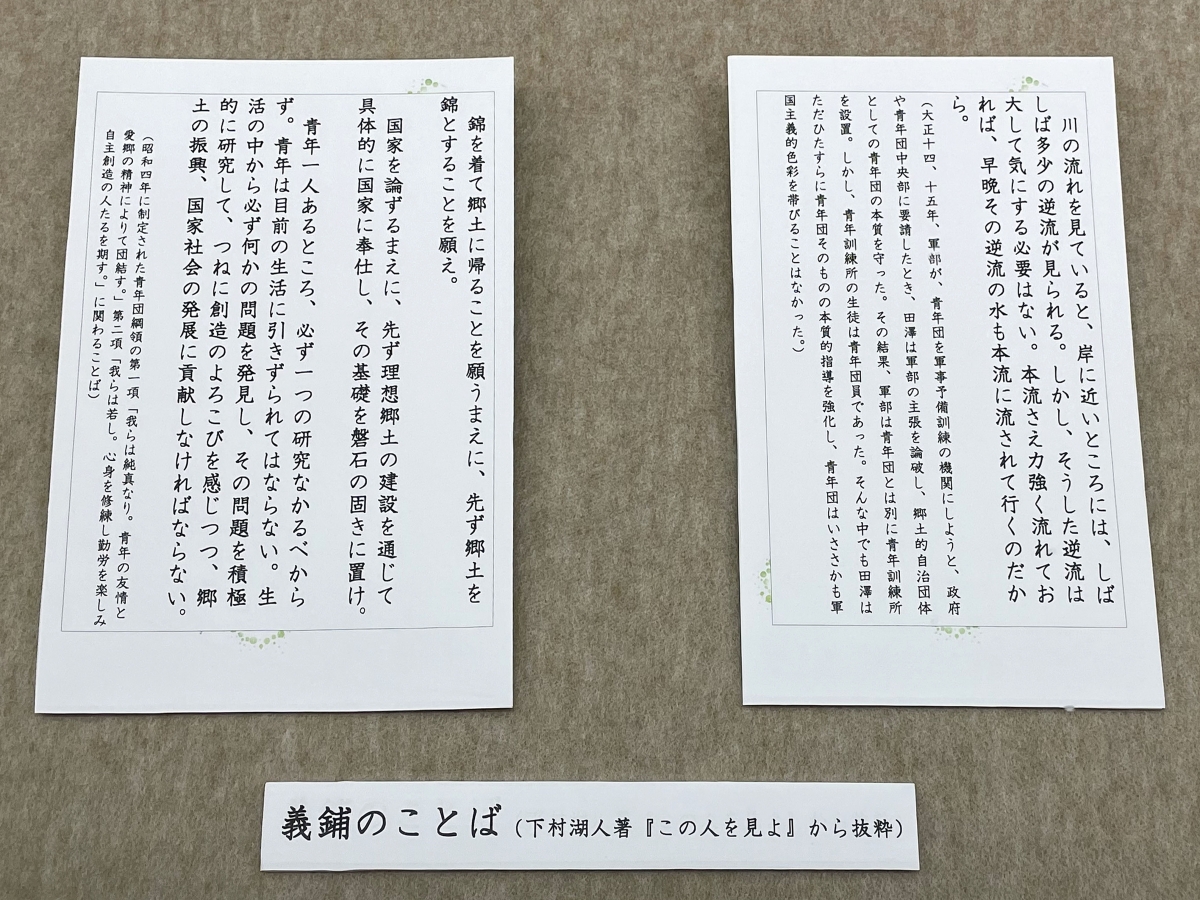 川の流れを見ていると、岸に近いところには、しば
しば多少の逆流が見られる。しかし、そうした逆流は
大して気にする必要はない。本流さえ力強く流れてお
れば、早晩その逆流の水も本流に流されて行くのだか
ら。
（大正十四、十五年、軍部が、青年団を軍事予備訓練の機関にしようと、政府
や青年団中央部に要請したとき、田澤は軍部の主張を論破し、郷土的自治団体
としての青年団の本質を守った。その結果、軍部は青年団とは別に青年訓練所
を設置。しかし、青年訓練所の生徒は青年団員であった。そんな中でも田澤は
ただひたすらに青年団そのものの本質的指導を強化し、青年団はいささかも軍
国主義的色彩を帯びることはなかった。）
錦を着て郷土に帰ることを願うまえに、先ず郷土を
錦とすることを願え。
国家を論ずるまえに、先ず理想郷土の建設を通じて
具体的に国家に奉仕し、その基礎を磐石の固きに置け。
青年一人あるところ、必ず一つの研究なかるべから
ず。青年は目前の生活に引きずられてはならない。生
活の中から必ず何かの問題を発見し、その問題を積極
的に研究して、つねに創造のよろこびを感じつつ、郷
土の振興、国家社会の発展に貢献しなければならない。
（昭和四年に制定された青年団綱領の第一項「我らは純真なり。青年の友情と
愛郷の精神によりて団結す。」第二項「我らは若し。心身を修練し勤労を楽しみ
自主創造の人たるを期す。」に関わることば）
義鋪のことば（下村湖人著『この人を見よ』から抜粋）